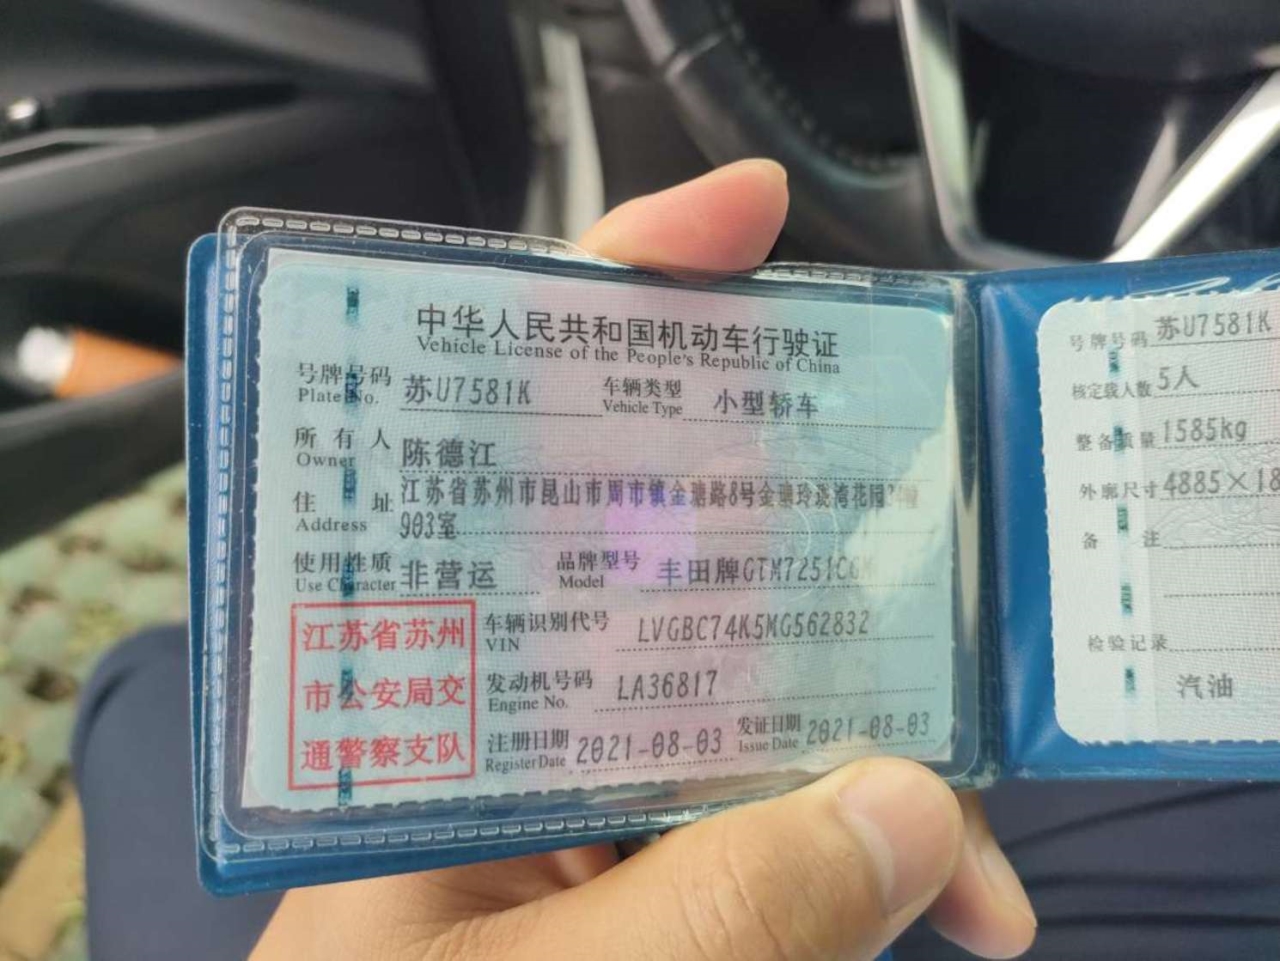 中华人民共和国机动车行驶证
Vehicle License of the People's Republic of China
号牌号码 苏U7581K 车辆类型 小型轿车
Plate No. Vehicle Type
所有人 陈德江
Owner
住址 江苏省苏州市昆山市周市镇金塘路8号金塘玲珑湾花园
Address 903室
使用性质 非营运 品牌型号 丰田牌GTM7251
Use Character Model
江苏省苏州
市公安局交
通警察支队
车辆识别代号 LVGBC74K5MG562832
VIN
发动机号码 LA36817
Engine No.
注册日期 2021-08-03 发证日期 2021-08-03
Register Date Issue Date
号牌号码 苏U7581K
核定载人数 5人
整备质量 1585kg
外廓尺寸 4885×18
备注
检验记录
汽油